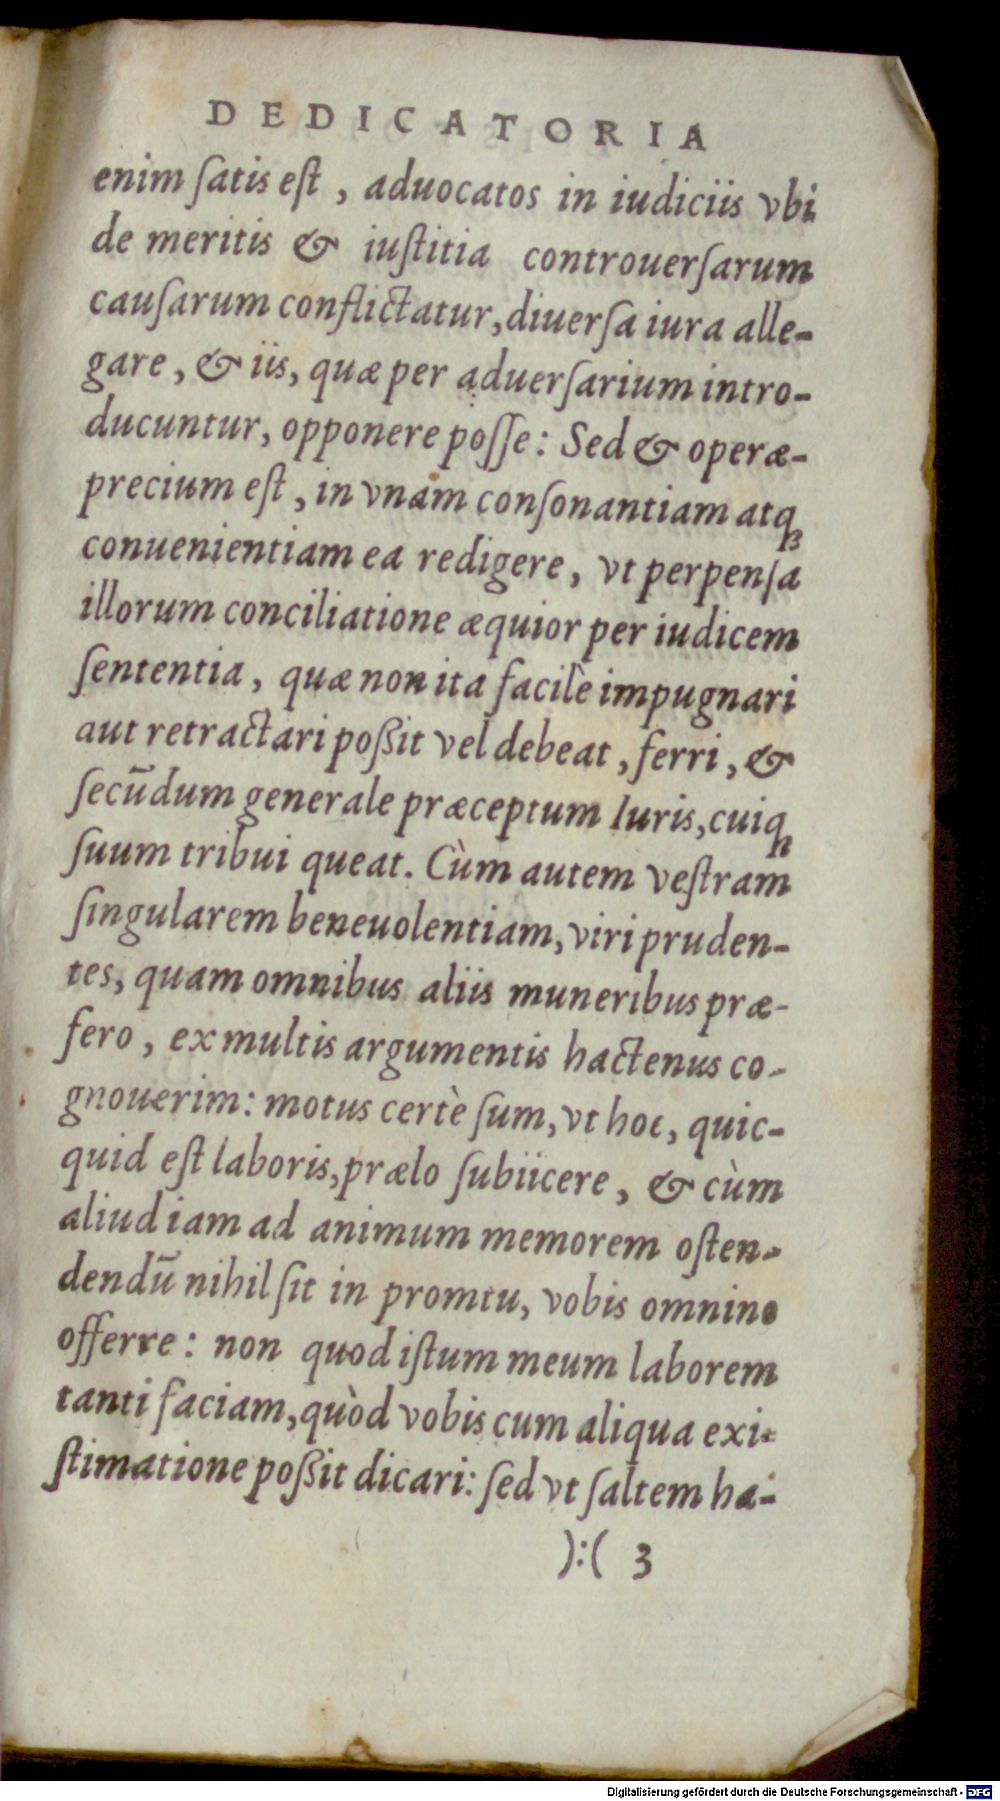 DEDICATORIA
enim ſatis eſt, aduocatos in iudiciis vbi
de meritis & iuſtitia controuerſarum
cauſarum conflictatur, diuerſa iura alle-
gare, & iis, quæ per aduerſarium intro-
ducuntur, opponere poſſe: Sed & operæ-
precium eſt, in vnam conſonantiam atqꝫ
conuenientiam ea redigere, vt perpenſa
illorum conciliatione æquior per iudicem
ſententia, quæ non ita facilè impugnari
aut retractari poßit vel debeat, ferri, &
ſecūdum generale præceptum Iuris, cuiqꝫ
ſuum tribui queat. Cùm autem veſtram
ſingularem beneuolentiam, viri pruden-
tes, quam omnibus aliis muneribus præ-
fero, ex multis argumentis hactenus co-
gnouerim: motus certè ſum, vt hoc, quic-
quid eſt laboris, prælo ſubiicere, & cùm
aliud iam ad animum memorem oſten-
dendū nihil ſit in promtu, vobis omnino
offerre: non quod iſtum meum laborem
tanti faciam, quòd vobis cum aliqua exi-
ſtimatione poßit dicari: ſed vt ſaltem ha-
):( 3
Digitalisierung gefördert durch die Deutsche Forschungsgemeinschaft - DFG